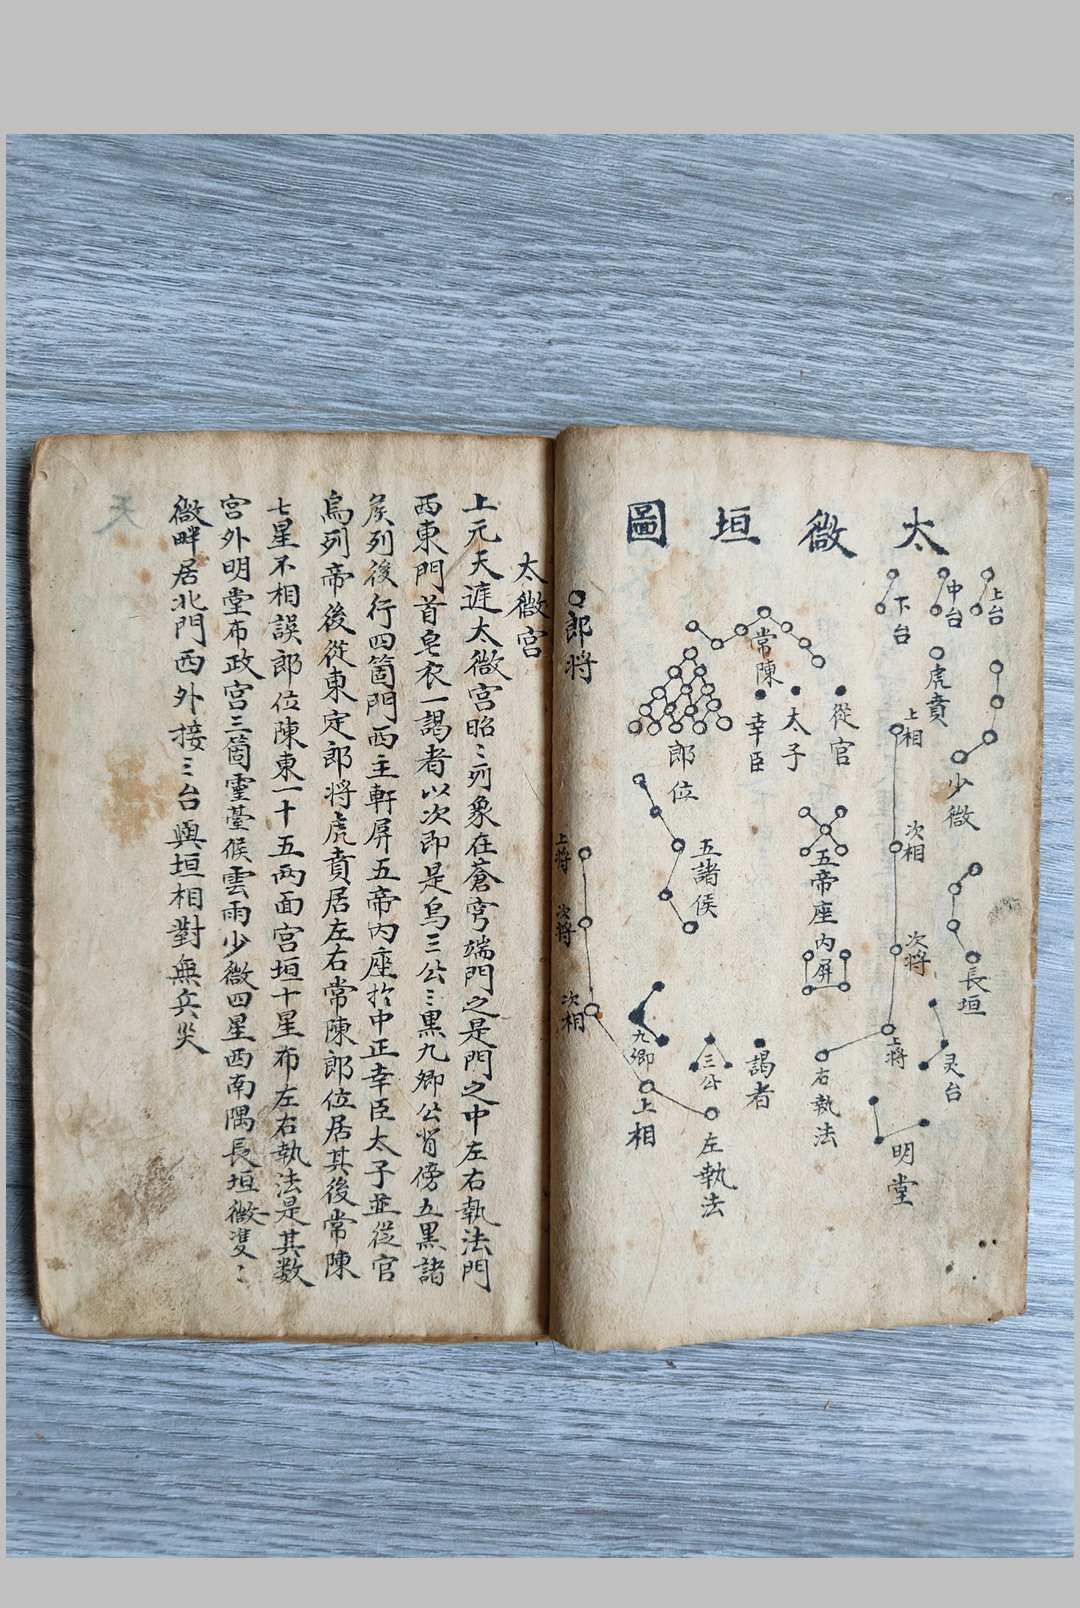 太微垣圖
上台
中台
下台
虎賁
少微
常陳
從官
太子
幸臣
郎位
郎將
上相
次相
次將
上將
五帝座
内屏
五諸侯
長垣
灵台
明堂
右執法
謁者
三公
九卿
左執法
上相
次相
次將
上將
太微宫
上元天涯太微宫昭〻列象在蒼穹端門之是門之中左右執法門
西東門首皂衣一謁者以次即是烏三公三黑九卿公背傍五黑諸
矦列後行四箇門西主軒屏五帝内座扵中正幸臣太子並從官
烏列帝後從東定郎將虎賁居左右常陳郎位居其後常陳
七星不相誤郎位陳東一十五两面宫垣十星布左右執法是其数
宫外明堂布政宫三箇靈臺候雲雨少微四星西南隅長垣微雙〻
微畔居北門西外接三台與垣相對無兵災